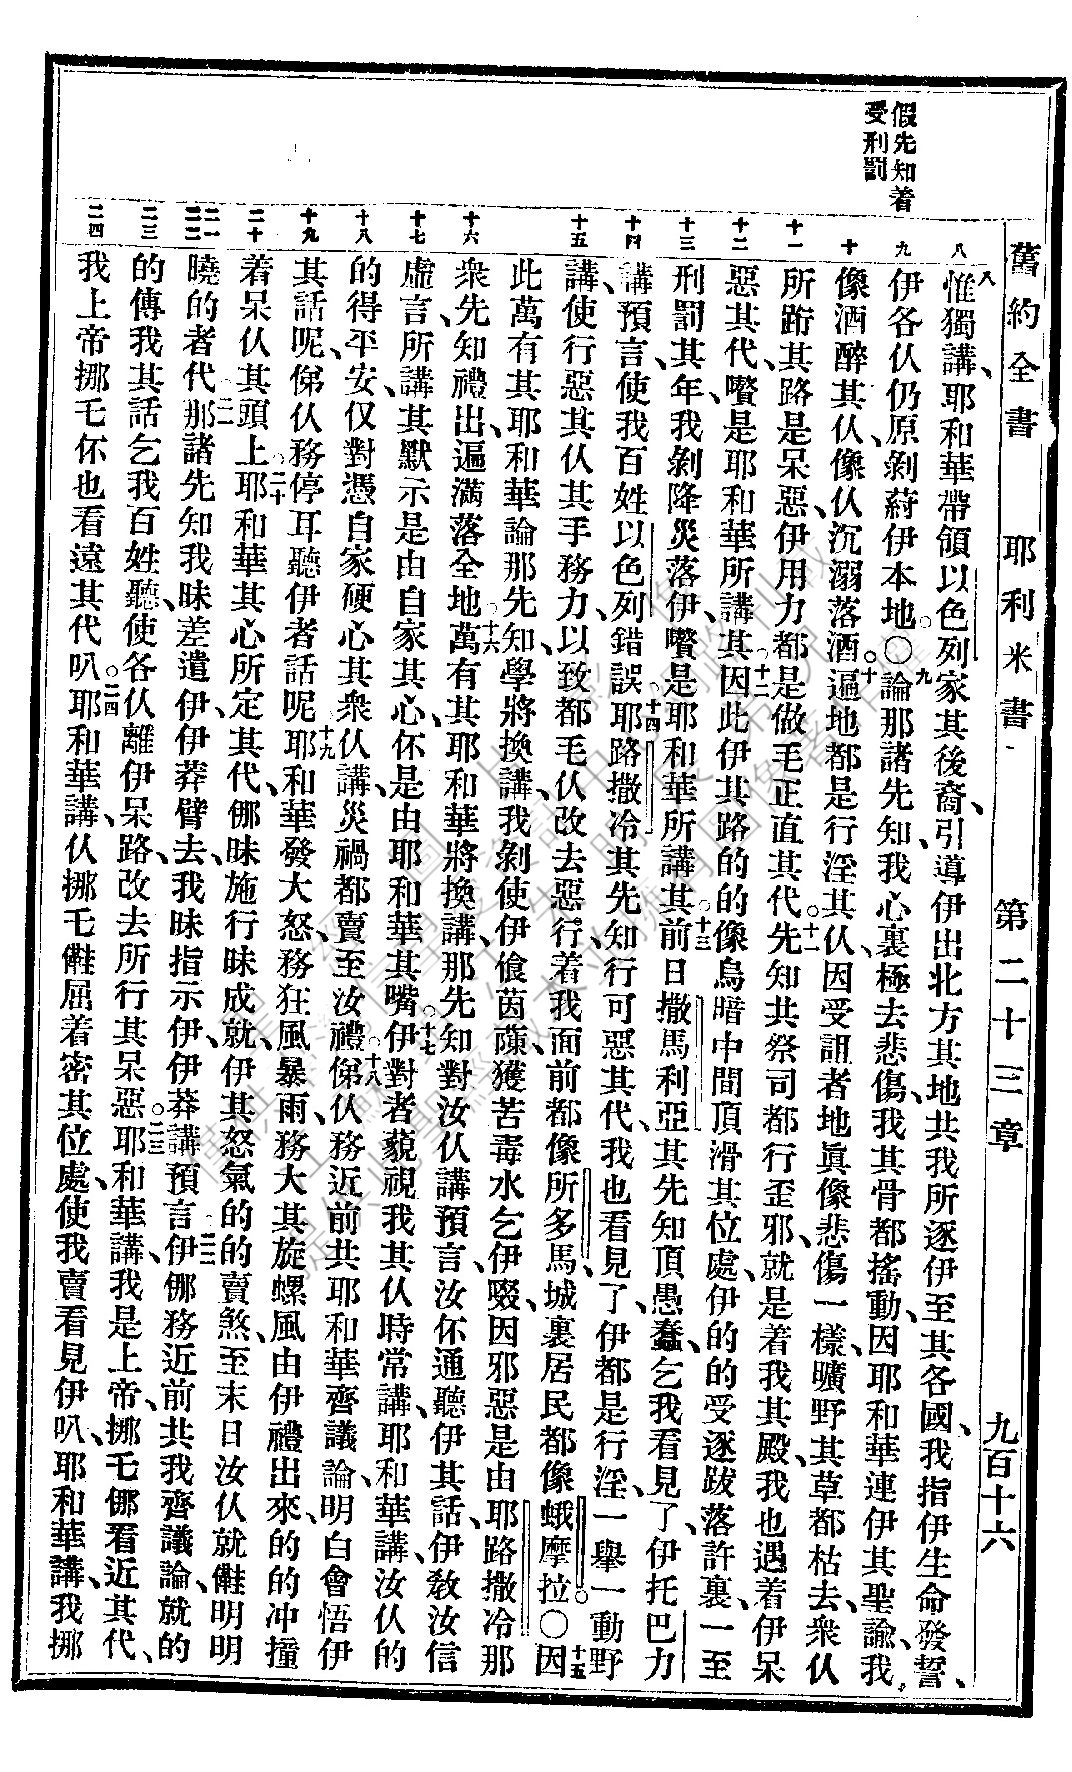 舊約全書 耶利米書 第二十三章 九百十六
假先知着
受刑罰
八 九 十 十一 十二 十三 十四 十五 十六 十七 十八 十九 二十 二一 二二 二三 二四
八惟獨講、耶和華帶領以色列家其後裔、引導伊出北方其地共我所逐伊至其各國、我指伊生命發誓、
伊各仈仍原剝蒔伊本地。○九論那諸先知、我心裏極去悲傷、我其骨都搖動、因耶和華連伊其聖諭、我
像酒醉其仈、像仈沉溺落酒。十遍地都是行淫其仈、因受詛者地眞像悲傷一樣、曠野其草都枯去、衆仈
所跨其路是呆惡、伊用力都是做毛正直其代。十一先知共祭司都行歪邪、就是着我其殿、我也遇着伊呆
惡其代、嚽是耶和華所講其。十二因此伊其路的的像烏暗中間頂滑其位處、伊的的受逐跋落許裏、一至
刑罰其年、我剝降災落伊、嚽是耶和華所講其。十三前日撒馬利亞其先知頂愚蠢、乞我看見了、伊托巴力
講預言、使我百姓以色列錯誤。十四耶路撒冷其先知行可惡其代、我也看見了、伊都是行淫、一舉一動野
講、使行惡其仈其手務力、以致都毛仈改去惡行、着我面前都像所多馬城裏居民都像蛾摩拉。○十五因
此萬有其耶和華論那先知、學將換講、我剝使伊飧茵蔯、獲苦毒水乞伊啜、因邪惡是由耶路撒冷那
衆先知禮出、遍滿落全地。十六萬有其耶和華將換講、那先知對汝仈講預言、汝伓通聽伊其話、伊敎汝信
虛言、所講其默示是由自家其心、伓是由耶和華其嘴。十七伊對者藐視我其仈時常講、耶和華講、汝仈的
的得平安、仅對憑自家硬心其衆仈講、災禍都賣至汝禮。十八俤仈務近前共耶和華齊議論、明白會悟伊
其話呢、俤仈務停耳聽伊者話呢。十九耶和華發大怒、務狂風暴雨、務大其旋螺風由伊禮出來、的的冲撞
着呆仈其頭上。二十耶和華其心所定其代、𣍐昧施行昧成就、伊其怒氣的的賣煞、至末日汝仈就𠆧明明
曉的者代。二一那諸先知我昧差遣伊、伊莽臂去、我昧指示伊、伊莽講預言。二二伊𣍐務近前共我齊議論、就的
的傳我其話乞我百姓聽、使各仈離伊呆路、改去所行其呆惡。二三耶和華講、我是上帝、挪乇𣍐看近其代、
我上帝挪乇伓也看遠其代叭。二四耶和華講、仈挪乇𠆧屈着密其位處、使我賣看見伊叭、耶和華講、我挪